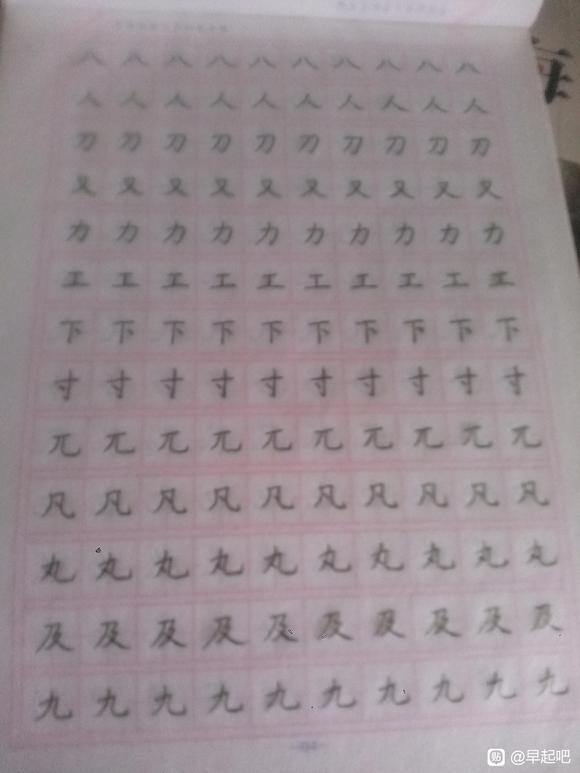 八八八八八八八八八八
人人人人人人人人人人
刀刀刀刀刀刀刀刀刀刀
又又又又又又又又又又
力力力力力力力力力力
工工工工工工工工工工
下下下下下下下下下下
寸寸寸寸寸寸寸寸寸寸
兀兀兀兀兀兀兀兀兀兀
凡凡凡凡凡凡凡凡凡凡
丸丸丸丸丸丸丸丸丸丸
及及及及及及及及及及
九九九九九九九九九九
贴 @早起吧